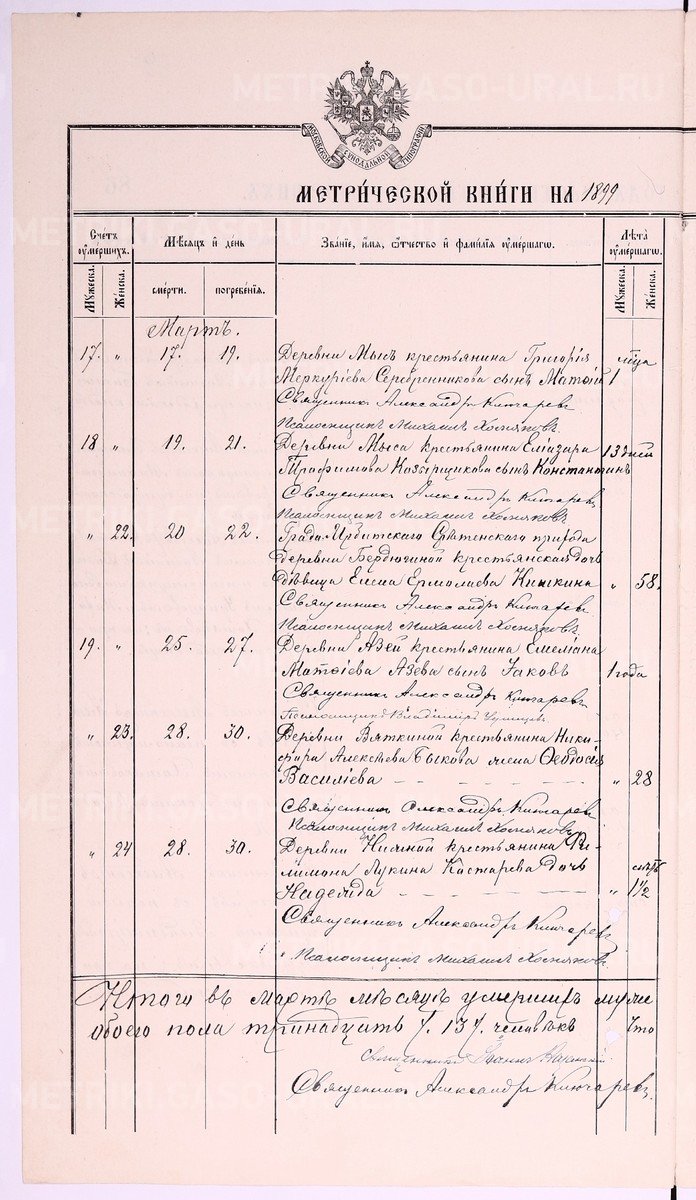 МЕТРИЧЕСКОЙ КНИГИ НА 1899
Счетъ умершихъ.
Мѣсяцъ и день
Званіе, имя, отчество и фамилія умершаго.
Лѣта умершаго.
Мужеска.
Женска.
смерти.
погребенія.
Мужеска.
Женска.
Мартъ.
17. " 17. 19. Деревни Мысъ крестьянина Григорія
Меркуріева Серебренникова сынъ Матѳій 1
Священникъ Александръ Ключаревъ
Псаломщикъ Михаилъ Хосняковъ
18 " 19. 21. Деревни Мыса крестьянина Еліазира 13 дней
Трофимова Козырщикова сынъ Константинъ
Священникъ Александръ Ключаревъ
Псаломщикъ Михаилъ Хосняковъ
" 22. 20 22. Града Ирбитскаго Срѣтенскаго прихода
деревни Бердюгиной крестьянская дочь
дѣвица Елена Ермолаева Кишкина " 58.
Священникъ Александръ Ключаревъ
Псаломщикъ Михаилъ Хосняковъ
19. " 25. 27. Деревни Азей крестьянина Емеліана
Матѳіева Азева сынъ Іаковъ 1 года
Священникъ Александръ Ключаревъ
Псаломщикъ Владиміръ
" 23. 28. 30. Деревни Вяткиной крестьянина Ники-
фора Алексѣева Быкова жена Ѳеодосія
Василіева " 28
Священникъ Александръ Ключаревъ
Псаломщикъ Михаилъ Хосняковъ
" 24 28. 30. Деревни Нижней крестьянина Фи-
лимона Лукина Костарева дочь
Надежда " 1 1/2
Священникъ Александръ Ключаревъ
Псаломщикъ Михаилъ Хосняковъ
Итого въ мартѣ мѣсяцѣ умершихъ муже
обоего пола тринадцать /. 13 /. человѣкъ Что
Священникъ Іоаннъ
Священникъ Александръ Ключаревъ.